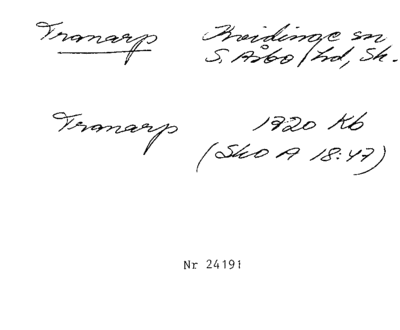 Tranarp Kvidinge sn
S. Åsbo hd, Sk.
Tranarp 1920 Kb
(Sko A 18:47)
Nr 24191